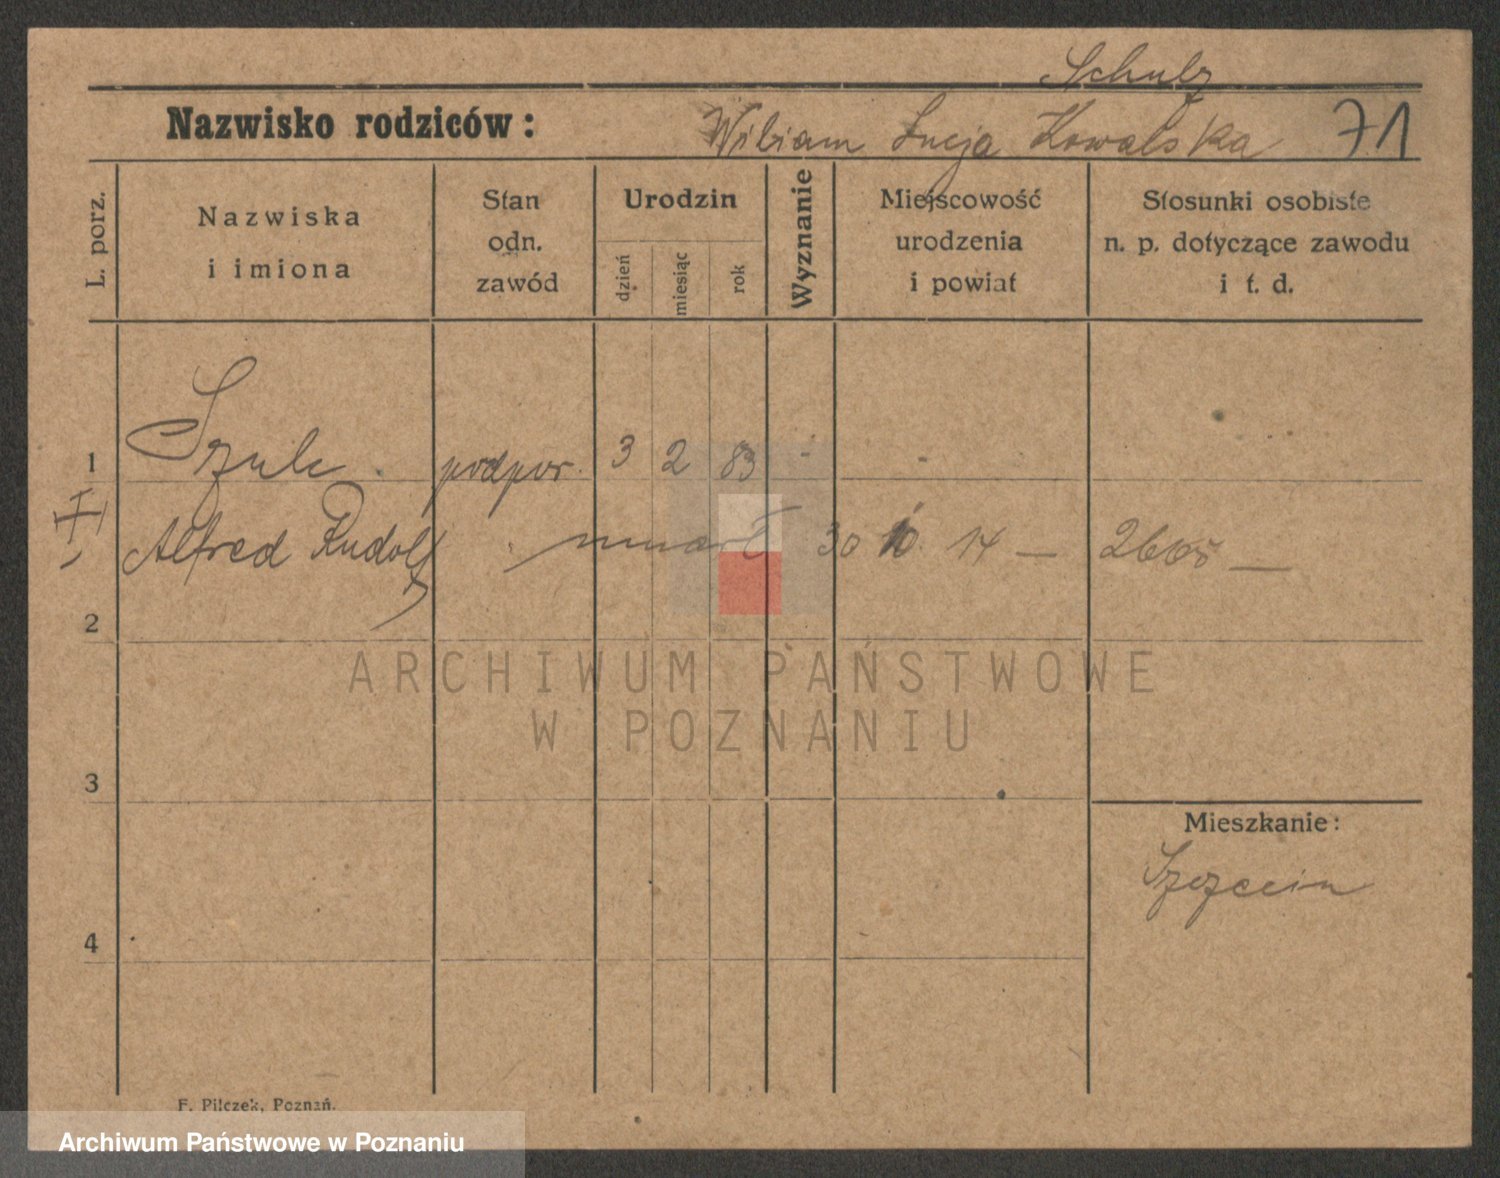 Schulz
Nazwisko rodziców: Wiliam Łucja Kowalska 71
L. porz.
Nazwiska
i imiona
Stan
odn.
zawód
Urodzin
dzień
miesiąc
rok
Wyznanie
Miejscowość
urodzenia
i powiat
Stosunki osobiste
n. p. dotyczące zawodu
i t. d.
1 Szulc podpor. 3 2 83 - -
Alfred Rudolf umarł 30 10 14 — 2605 —
2
ARCHIWUM PAŃSTWOWE
W POZNANIU
3
Mieszkanie:
Szczecin
4
F. Pilczek, Poznań.
Archiwum Państwowe w Poznaniu